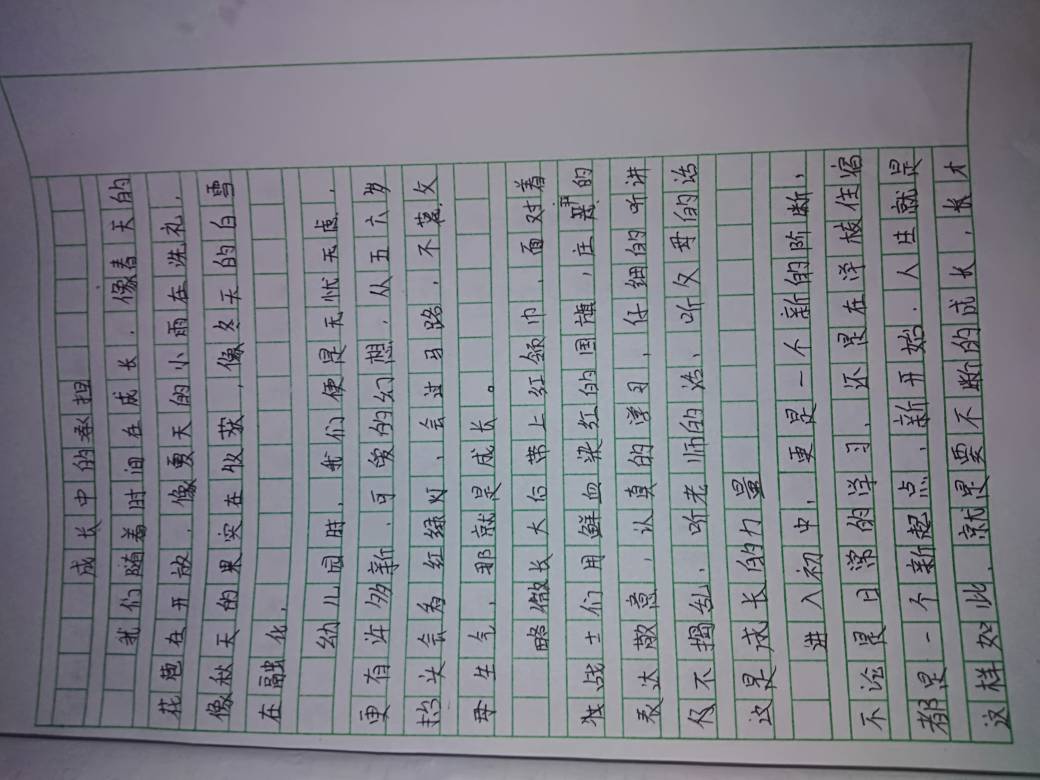 成长中的承担
我们随着时间在成长，像春天的
花苞在开放，像夏天的小雨在洗礼，
像秋天的果实在收获，像冬天的白雪
在融化，
幼儿园时，我们便是无忧无虑，
更有许多新，可爱的幻想，从五六岁
抬头会看红绿灯，会过马路，不惹父
母生气，那就是成长。
略微长大后带上红领巾，面对着
战士们用鲜血染红的国旗，庄严的
表达敬意，认真的学习，仔细的听讲
不捣乱，听老师的话，听父母的话
这是成长的力量
进入初中，更是一个新的阶断，
不论是日常的学习，还是在洋枝住宿
都是一个新起点，新开始．人生就是
这样如此，就是要不断的成长，长才